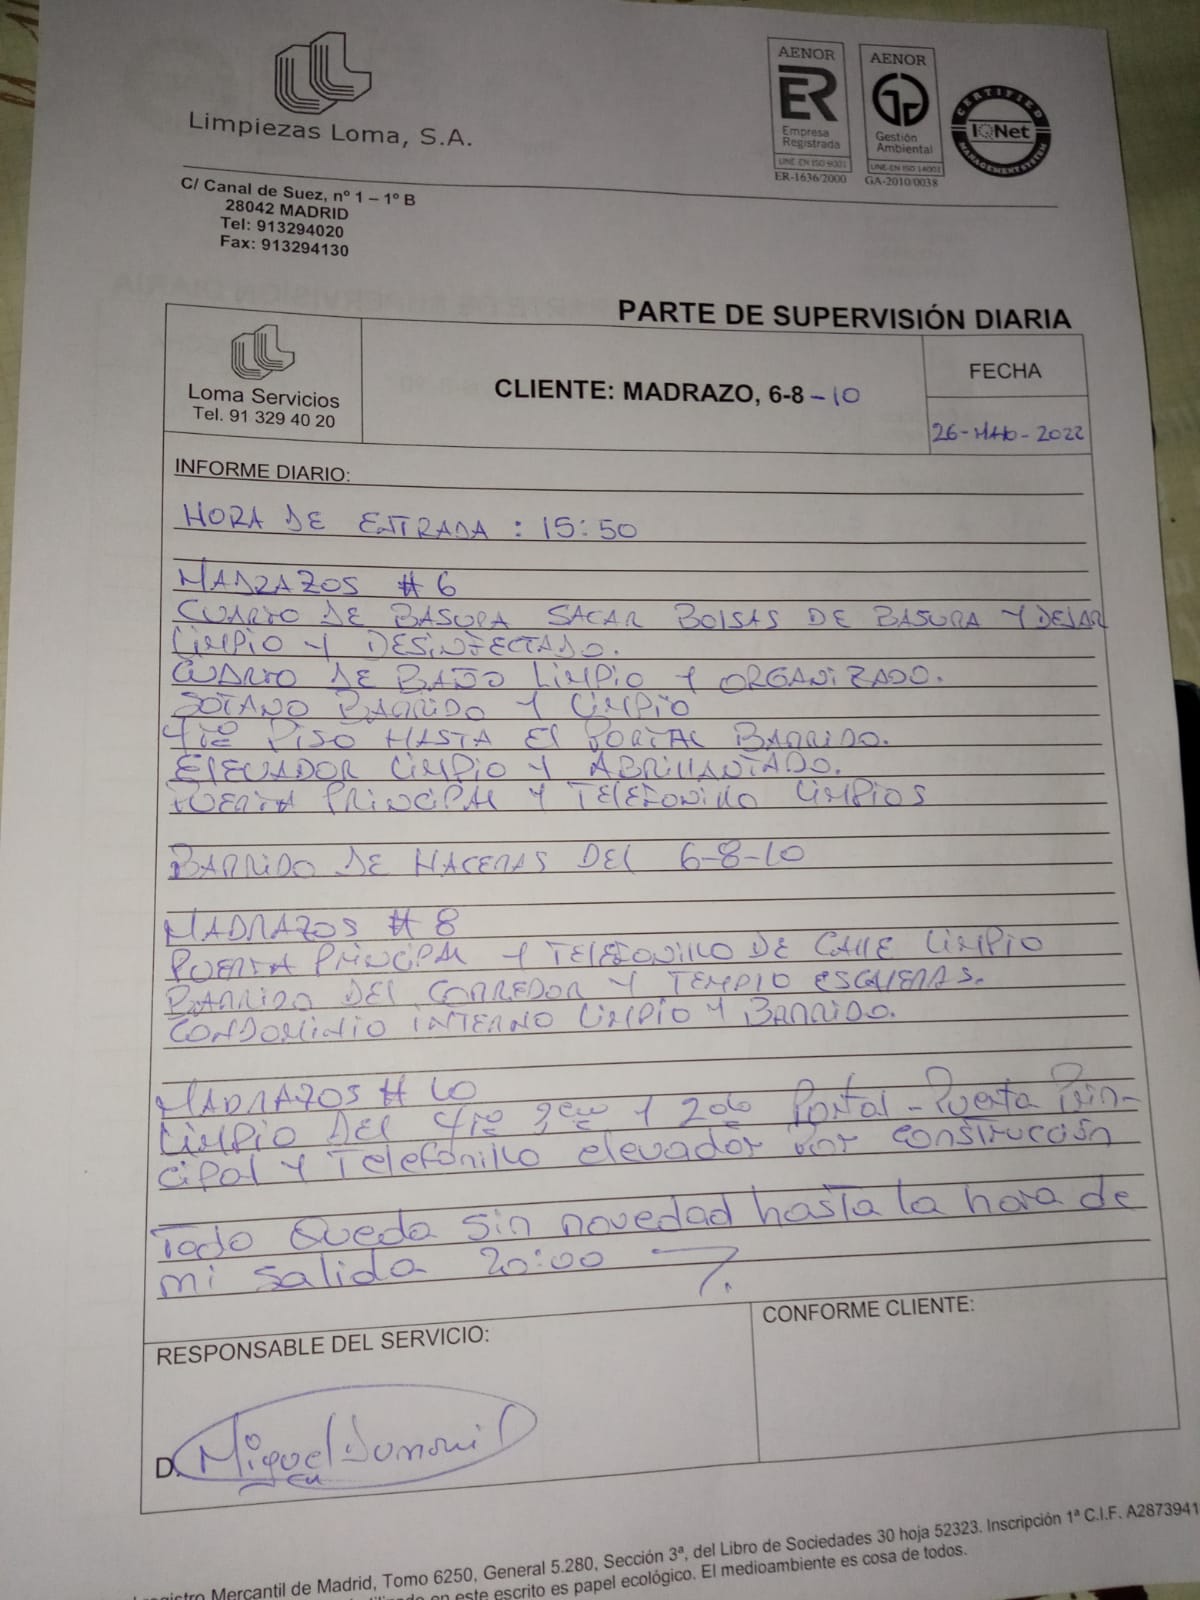 Limpiezas Loma, S.A.
C/ Canal de Suez, nº 1 – 1º B
28042 MADRID
Tel: 913294020
Fax: 913294130
AENOR
ER
Empresa
Registrada
UNE-EN ISO 9001
ER-1636/2000
AENOR
Gestión
Ambiental
UNE-EN ISO 14001
GA-2010/0038
CERTIFIED
IQNet
MANAGEMENT SYSTEM
PARTE DE SUPERVISIÓN DIARIA
Loma Servicios
Tel. 91 329 40 20
CLIENTE: MADRAZO, 6-8 - 10
FECHA
26-MAYO-2022
INFORME DIARIO:
HORA DE ENTRADA : 15:50
MADRAZOS # 6
CUARTO DE BASURA SACAR BOLSAS DE BASURA Y DEJAR
LIMPIO Y DESINFECTADO.
CUARTO DE BAÑO LIMPIO Y ORGANIZADO.
SOTANO BARRIDO Y LIMPIO
4to PISO HASTA EL PORTAL BARRIDO.
ELEVADOR LIMPIO Y ABRILLANTADO.
PUERTA PRINCIPAL Y TELEFONILLO LIMPIOS
BARRIDO DE HACERAS DEL 6-8-10
MADRAZOS # 8
PUERTA PRINCIPAL Y TELEFONILLO DE CALLE LIMPIO
BARRIDO DEL CORREDOR Y TEMPLO ESCALERAS.
CONDOMINIO INTERNO LIMPIO Y BARRIDO.
MADRAZOS # 10
LIMPIO DEL 4to 3er Y 2do Portal - Puerta Prin-
cipal Y Telefonillo elevador por construcción
Todo Queda sin novedad hasta la hora de
mi salida 20:00
RESPONSABLE DEL SERVICIO:
CONFORME CLIENTE:
D. Miguel
Registro Mercantil de Madrid, Tomo 6250, General 5.280, Sección 3ª, del Libro de Sociedades 30 hoja 52323. Inscripción 1ª C.I.F. A2873941
en este escrito es papel ecológico. El medioambiente es cosa de todos.